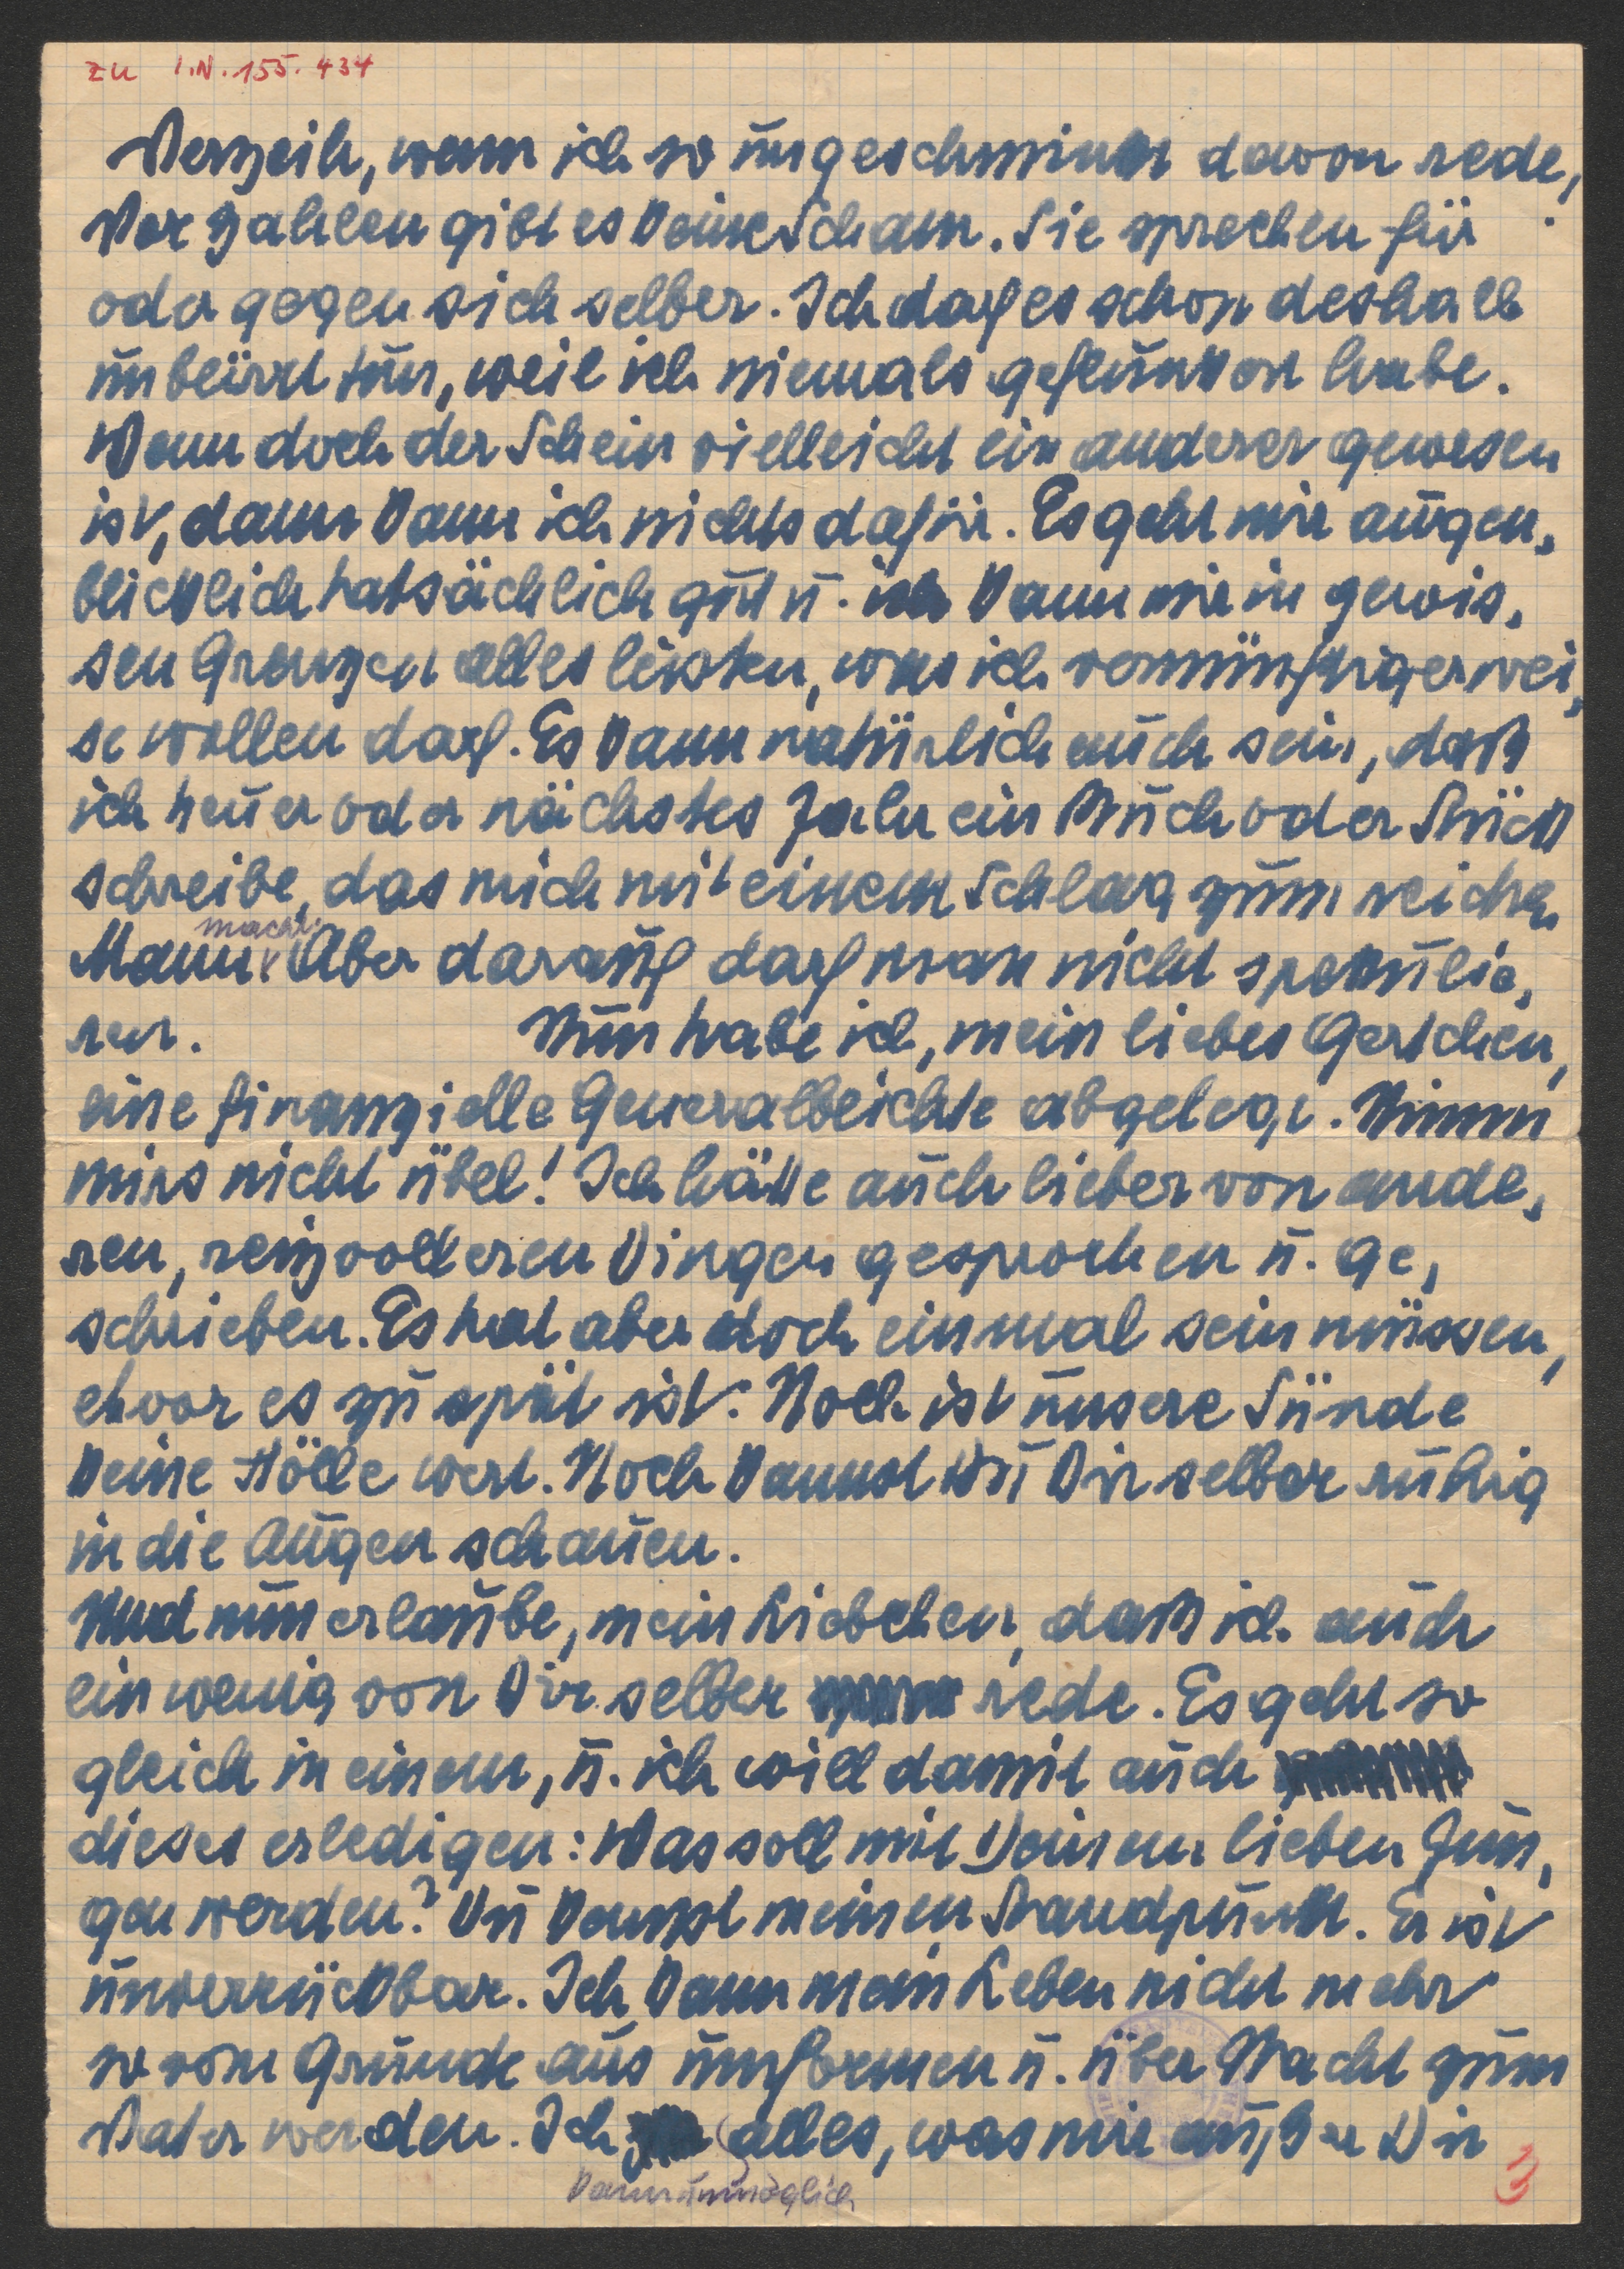 zu I.N. 155.434
Verzeih, wenn ich so ungeschminkt davon rede,
Vor Zahlen gibt es keine Scham. Sie sprechen für
oder gegen sich selber. Ich darf es schon deshalb
unbeirrt tun, weil ich niemals geflunkert habe.
Wenn doch der Schein vielleicht ein anderer gewesen
ist, dann kann ich nichts dafür. Es geht mir augen-
blicklich tatsächlich gut u. ich kann mir in gewis-
sen Grenzen alles leisten, was ich vernünftigerwei-
se wollen darf. Es kann natürlich auch sein, daß
ich heuer oder nächstes Jahr ein Buch oder Stück
schreibe, das mich mit einem Schlag zum reichen
macht.
Mann. Aber darauf darf man nicht spekulie-
ren. Nun habe ich, mein liebes Gertchen,
eine finanzielle Generalbeichte abgelegt. Nimm
mirs nicht übel! Ich hätte auch lieber von ande-
ren, reizvolleren Dingen gesprochen u. ge-
schrieben. Es hat aber doch einmal sein müssen,
ehvor es zu spät ist. Noch ist unsere Sünde
keine Hölle wert. Noch kannst Du Dir selber ruhig
in die Augen schauen.
Und nun erlaube, mein Liebchen, daß ich auch
ein wenig von Dir selber rede. Es geht so
gleich in einem, u. ich will damit auch
dieses erledigen: Was soll mit Deinem lieben Jun-
gen werden? Du kennst meinen Standpunkt. Er ist
unverrückbar. Ich kann mein Leben nicht mehr
so vom Grunde aus umformen u. über Nacht zum
Vater werden. Ich alles, was mir außer Dir
kann unmöglich
3